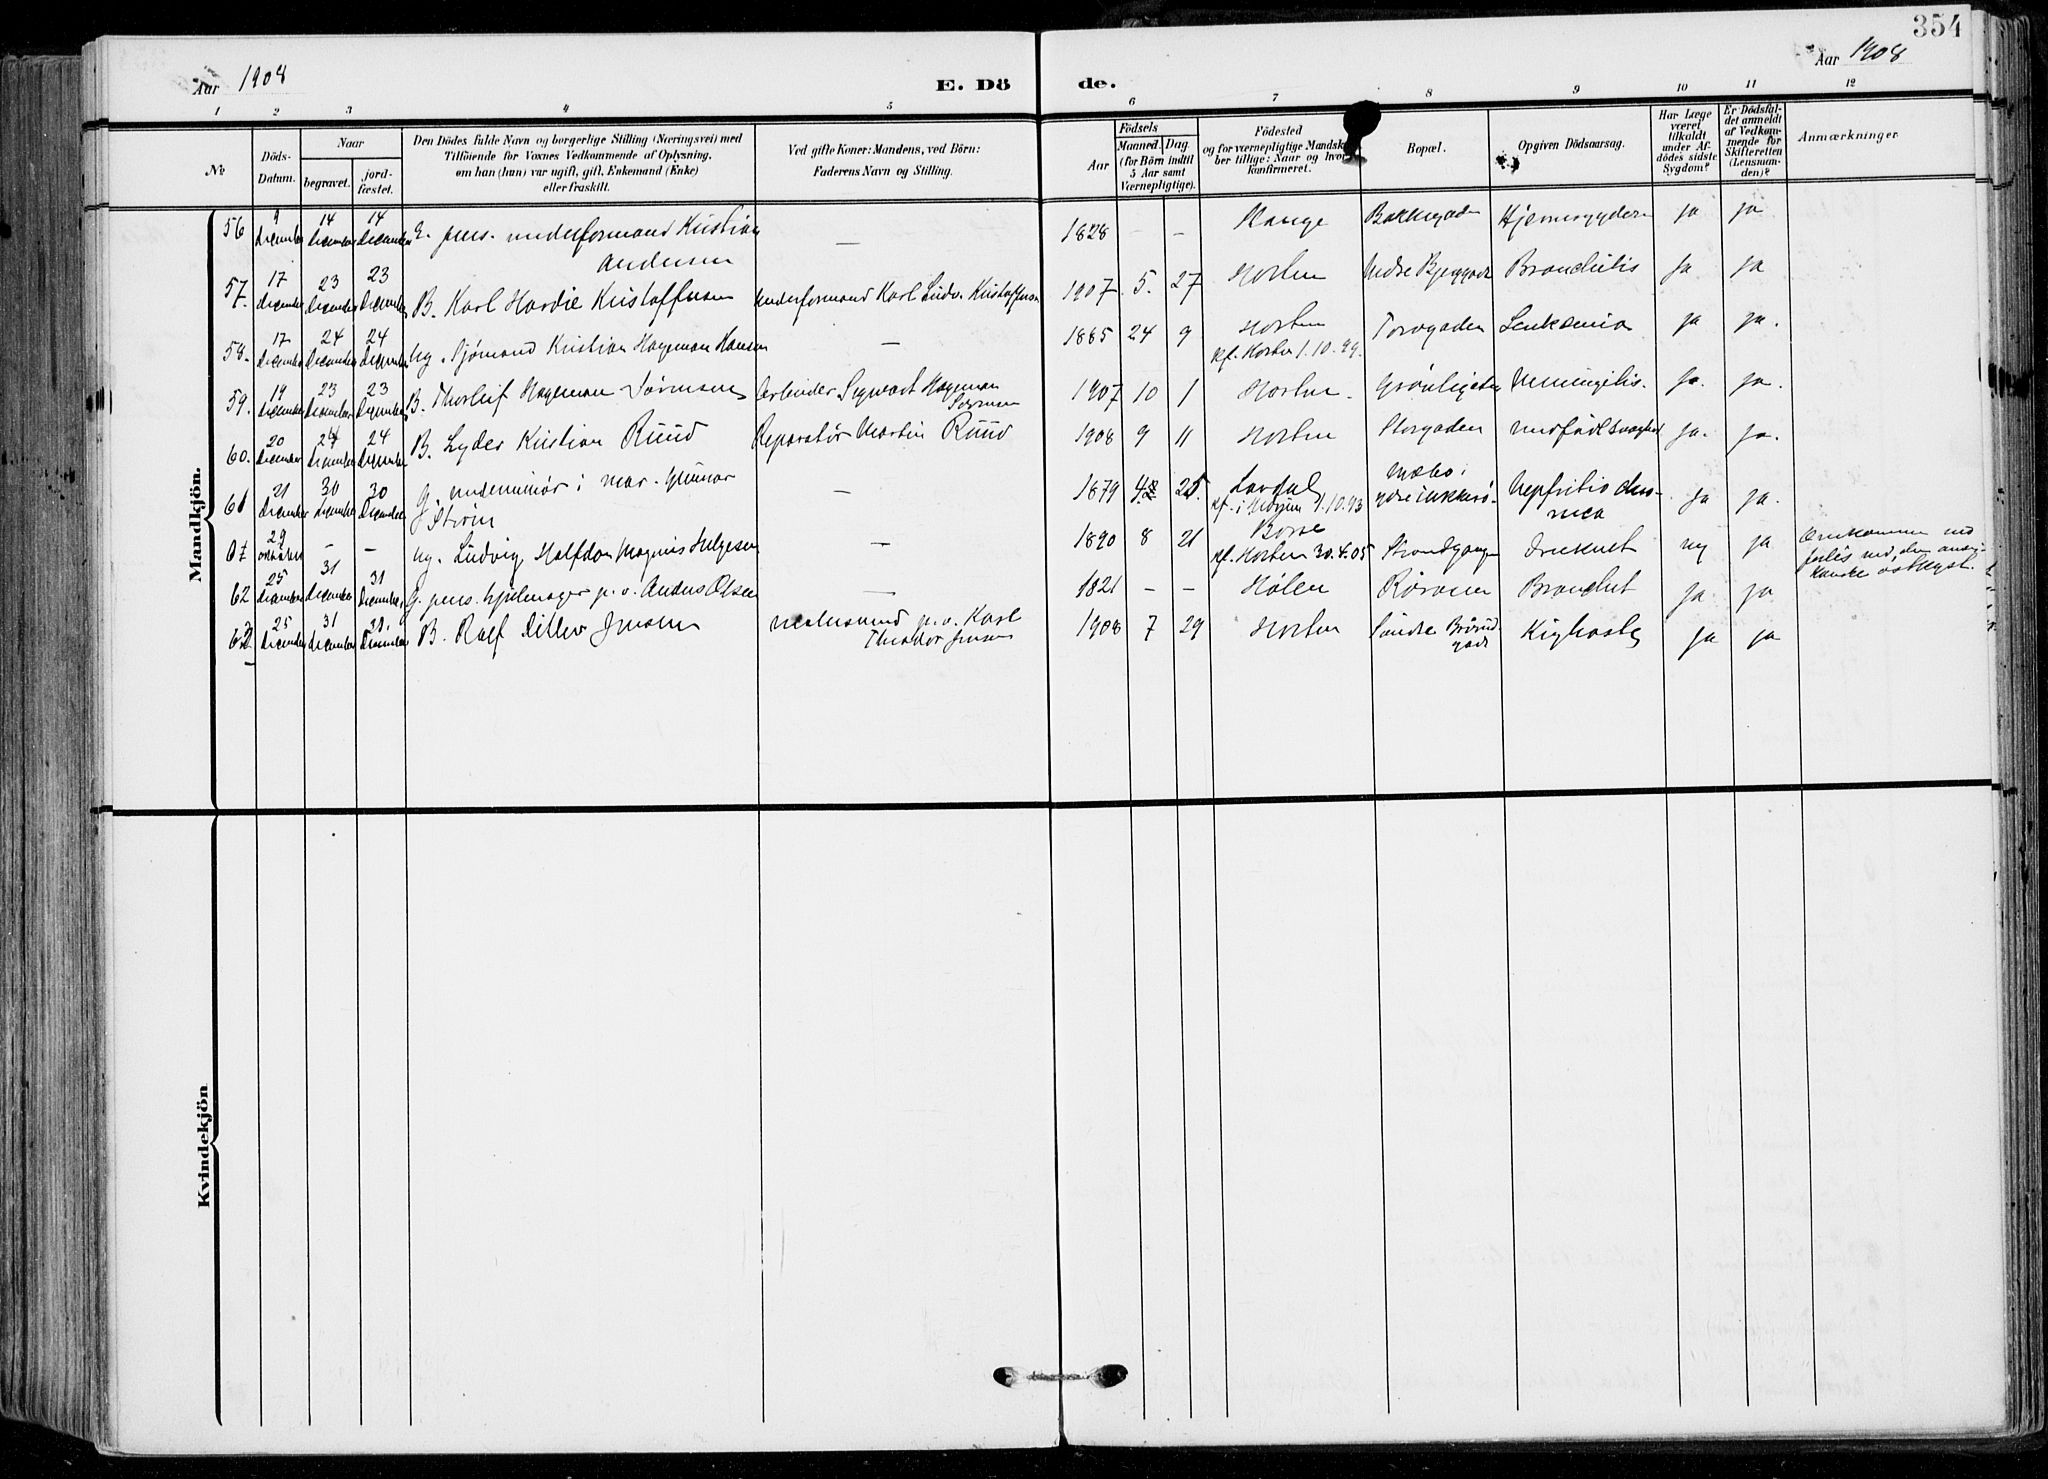 354
Aar 1908
E. Dö
de.
Aar 1908
1 2 3 4 5 6 7 8 9 10 11 12
No
Döds-
Datum.
Naar
begravet.
jord-
fæstet.
Den Dödes fulde Navn og borgerlige Stilling (Næringsvei) med
Tilföiende for Voxnes Vedkommende af Oplysning,
om han (hun) var ugift, gift, Enkemand (Enke)
eller fraskilt.
Ved gifte Koner: Mandens, ved Börn:
Faderens Navn og Stilling.
Födsels
Aar
Maaned. Dag.
(for Börn indtil
5 Aar samt
Værnepligtige).
Födested
og for værnepligtige Mandsk
ber tillige: Naar og hvor
konfirmeret.
Bopæl.
Opgiven Dödsaarsag.
Har Læge
været
tilkaldt
under Af-
dödes sidste
Sygdom?
Er Dödsfal-
det anmeldt
af Vedkom-
mende for
Skifteretten
(Lensman-
den)?
Anmærkninger
Mandkjön.
56 9 December 14 December 14 December E. pens. underformand Kristian — 1828 — — Bakkegaden ja ja
Andersen
57. 17 December 23 December 23 December B. Karl Hardie Kristoffersen Underformand Karl Ludv. Kristoffersen 1907 5. 27 Horten Nedre Bjerggade ja ja
58. 17 December 24 December 24 December Ug. Sjømand Kristian Hageman Hansen — 1885 24 9 Horten Torvgaden Leukæmia ja ja.
kf. Horten 1.10.99.
59. 19 December 23 December 23 December B. Thorleif Hageman Sørensen Arbeider Sigvart Hageman 1907 10 1 Horten. Meningitis. ja. ja.
Sørensen
60. 20 December 24 December 24 December B. Lyder Kristian Ruud Reparatør Martin Ruud 1908 9 11 Horten Storgaden medfødt svaghed ja. ja.
61 21 December 30 December 30 December G. underminør i mar. Gunnar — 1879 25 Lardal ja ja.
Strøm
kf. i 1.10.93
07 29 oktober — — Ug. Ludvig Halfdan Magnus Helgesen — 1890 8 21 Borre Strandgangen Druknet nej ja Omkommen ved
kf. Horten 30.4.05
forlis ved den ameri-
kanske østkyst.
62 25 December 31 December 31 December. G. pens. hjulmager p. v. Anders Olsen — 1821 — — Hølen Rørveien ja ja
63 25 December 31 December 31 December B. Rolf Ditlev Jensen p. v. Karl 1908 7 29 Horten Søndre Kighoste ja ja
Theodor Jensen
gade
Kvindekjön